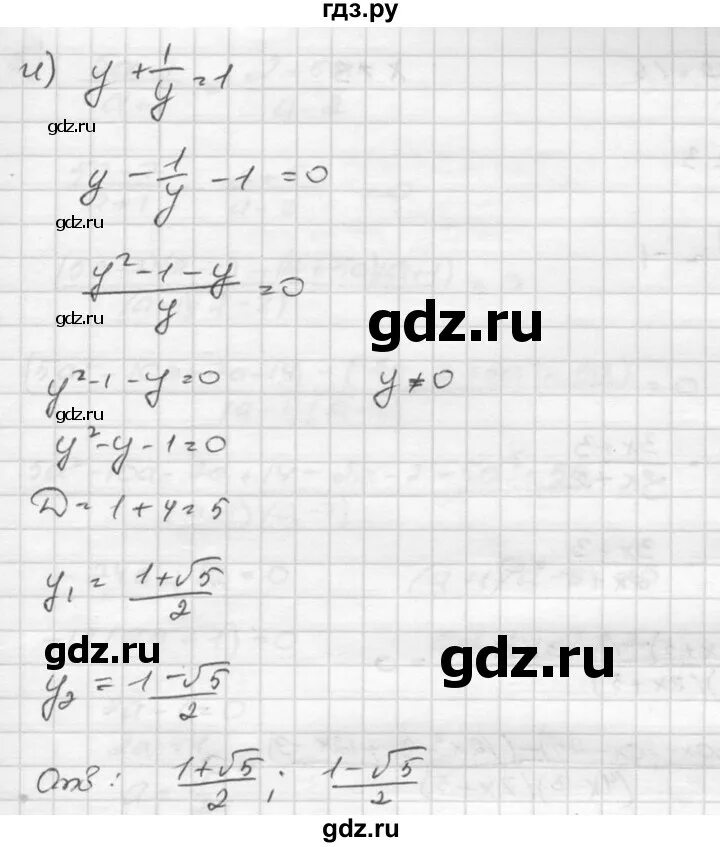 гдз.ру
и) y + 1/y = 1
gdz.ru
y - 1/y - 1 = 0
gdz.ru
(y² - 1 - y)/y = 0
gdz.ru
gdz.ru
y² - 1 - y = 0 y ≠ 0
y² - y - 1 = 0
D = 1 + 4 = 5
y₁ = (1+√5)/2
gdz.ru
gdz.ru
y₂ = (1-√5)/2
Отв: (1+√5)/2 ; (1-√5)/2
gdz.ru